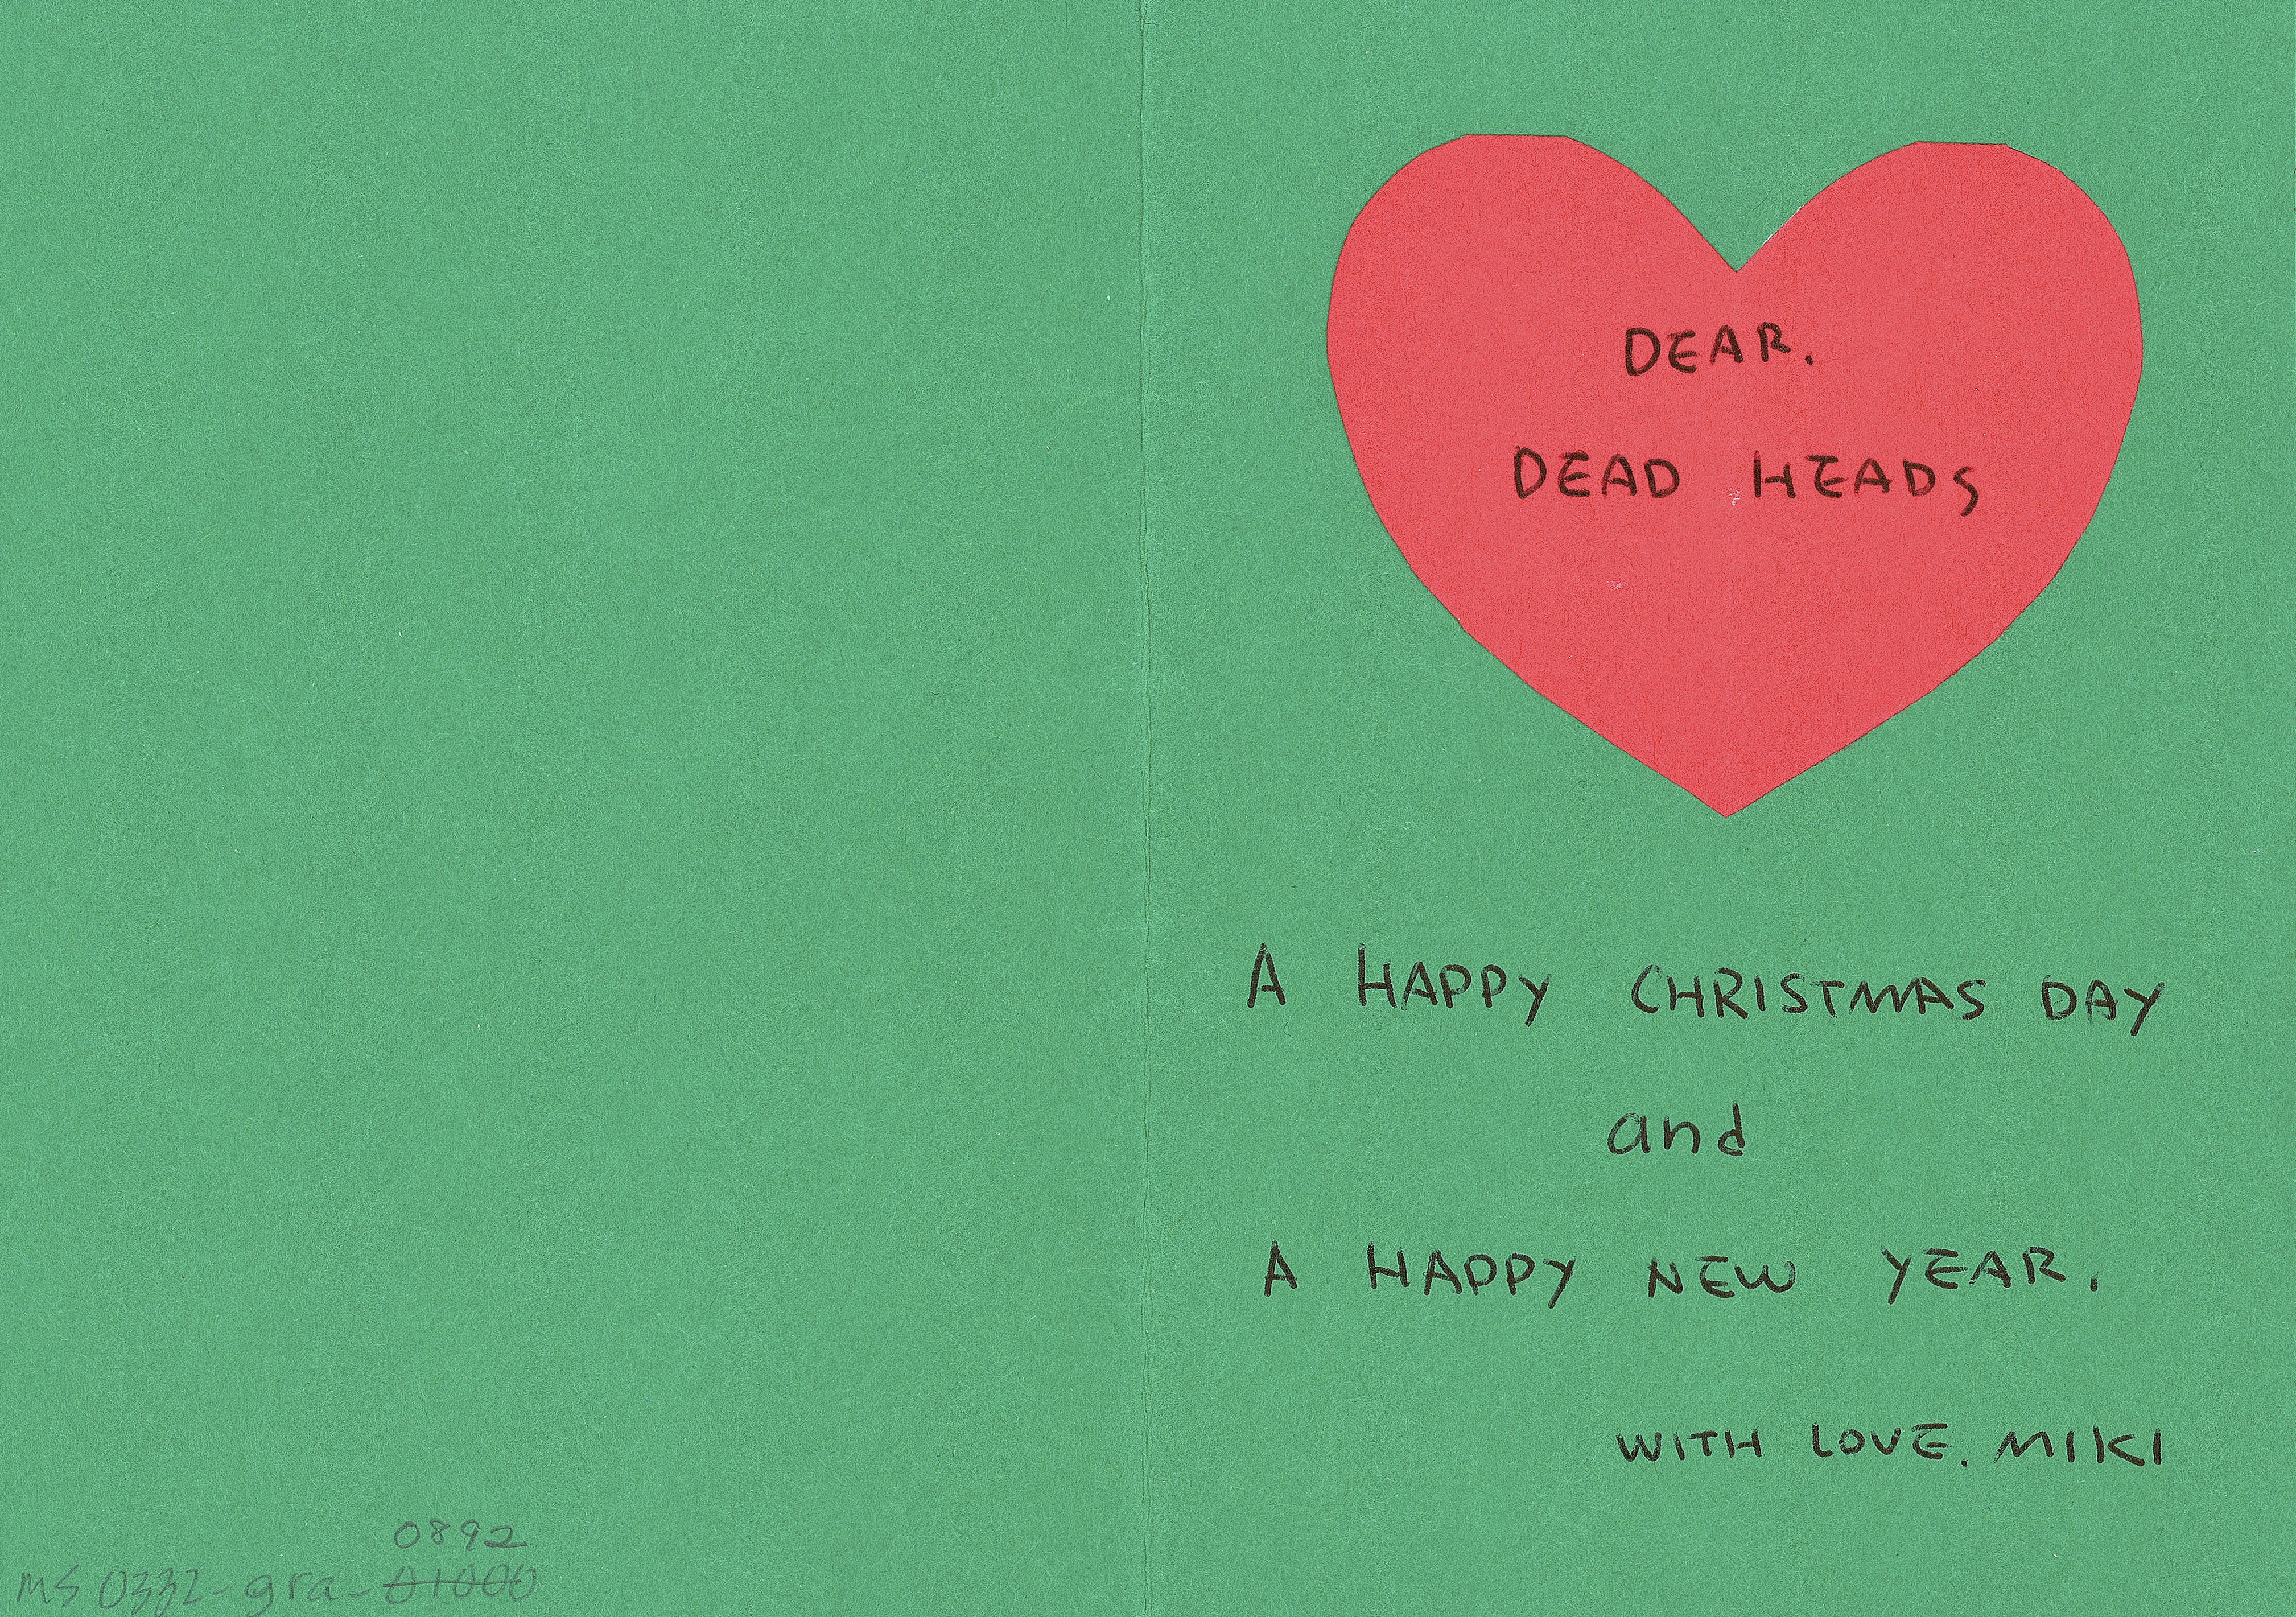 DEAR.
DEAD HEADS
A HAPPY CHRISTMAS DAY
and
A HAPPY NEW YEAR.
WITH LOVE. MIKI
0892
MS 0332-gra-01000